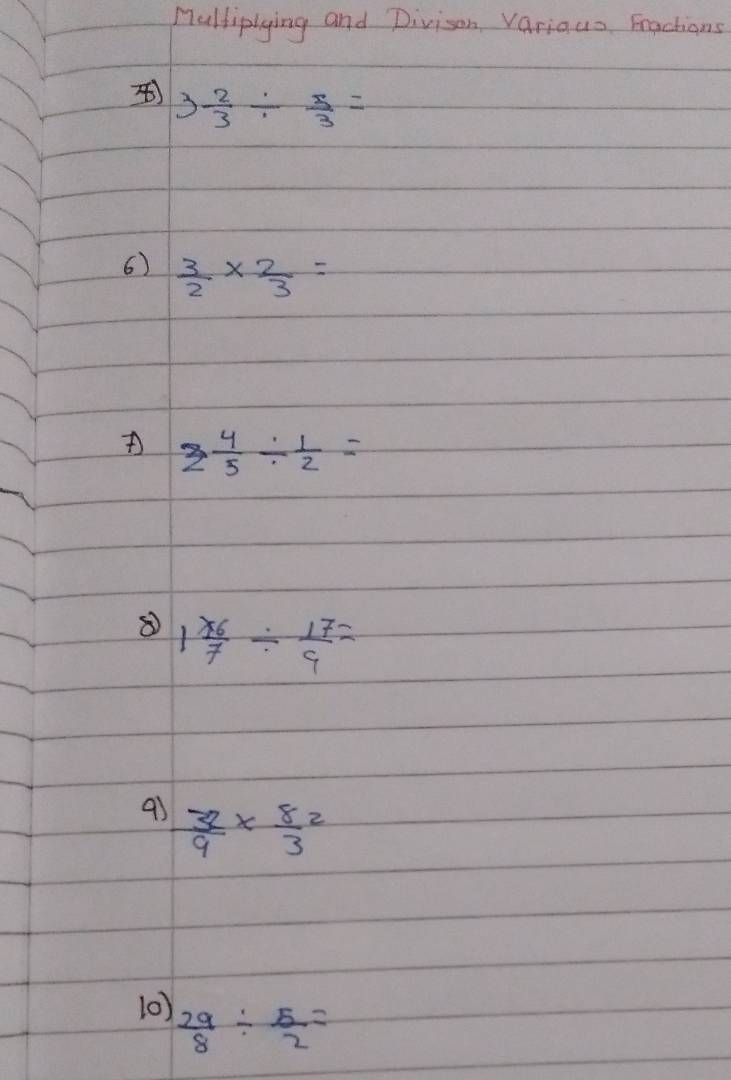 Multiplying and Divison Various Fractions
5) 3 2/3 ÷ 5/3 =
6) 3/2 × 2/3 =
7) 4/5 ÷ 1/2 =
8) 1 6/7 ÷ 17/9 =
9) /9 × 8/3 =
10) 29/8 ÷ 5/2 =